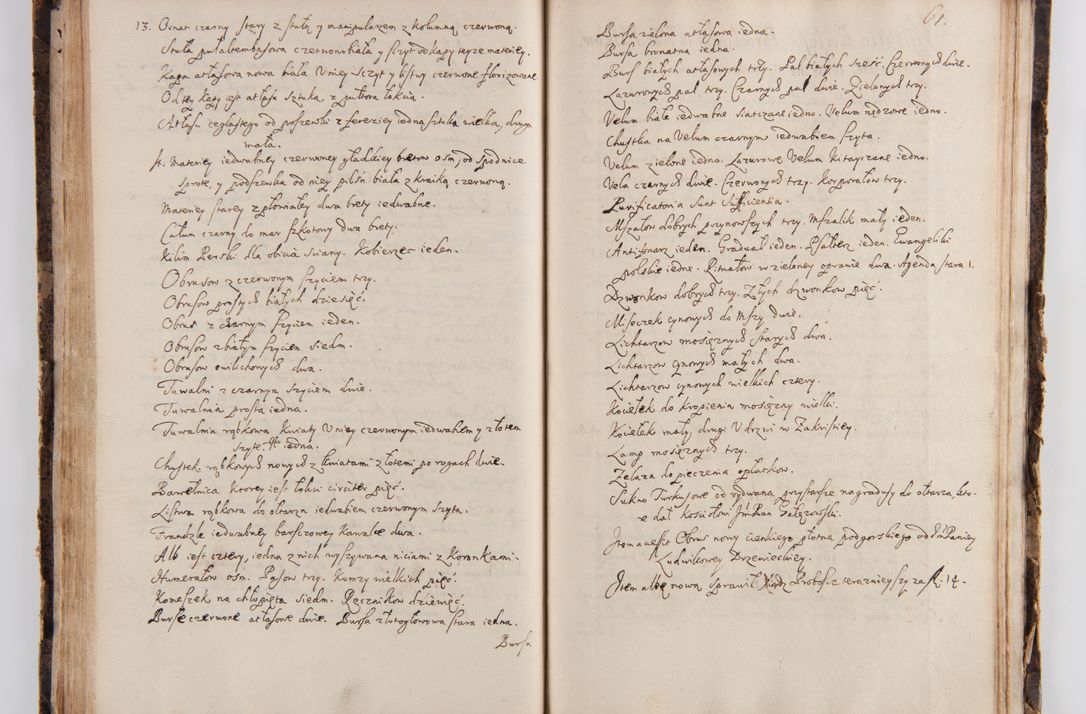 13. Ornat czarny stary z stułą y manipularzem z kolumną czerwoną.
Stuła pułaltembasowa czerwono biała y szczyt od kapy teyze materiey.
Kapa atłasowa nowa biała U niey Sczyt y listwy czerwone florizowane
Od tey kapy iest atłasu sztuka, z pułtora łokcia.
Atłasu ceglastego od poszewki z fereziey iedna sztuka wielka, druga
mała.
Materiey iedwabney czerwoney gładkiey bretow osm, od spodnice
sprote, y podszewka od niey pilśń biała z kraiką czerwoną.
Materiey starey z płowiałey dwa brety iedwabne.
Całun czarny do mar szkotowy dwa brety.
Kilim Perski dla obicia sciany. Kobierzec ieden.
Obrusow z czerwonym szyciem trzy.
Obrusow prostych białych dziesięć.
Obrus z czarnym szyciem ieden.
Obrusow z białym szyciem siedm.
Obrusow cwilichowych dwa.
Tuwalni z czarnym szyciem dwie.
Tuwalnia prosta iedna.
Tuwalnia rąbkowa Kwiaty U niey czerwonym iedwabiem y złotem
szyte iedna.
Chustek rąbkowych nowych z kwiatami złotemi po rogach dwie.
Bawełnica ktorey iest łokci circiter pięć.
Listwa rąbkowa do ołtarza iedwabiem czerwonym szyta.
Frandzle iedwabney barszczowey kawałce dwa.
Alb iest cztery, iedna z nich wyszywana niciami z koronkami.
Humerałow osm. Pasow trzy. Komzy wielkich pięć.
Komeszek na chłopięta siedm. Ręcznikow dziewięć.
Burse czerwone atłasowe dwie. Bursa złotogłowowa stara iedna.
Bursa
61.
Bursa zielona atłasowa iedna.
Bursa brunatna iedna.
Burs białych atłasowych trzy. Pal białych sześć. Czerwonych dwie.
Lazurowych pal trzy. Czarnych pal dwie. Zielonych trzy.
Velum białe iedwabne siatczane iedno. Velum rądzowe iedno.
Chustka na Velum czarnym iedwabiem szyta.
Velum zielone iedno. Lazurowe Velum kitayczane iedno.
Vela czarnych dwie. Czerwonych trzy. Korporałow trzy.
Purificatoria Sunt Sufficientia.
Mszałow dobrych przynowszych trzy. Mszalik mały ieden.
Antifonarz ieden. Graduał ieden. Psałterz ieden. Ewangeliki
polskie iedne. Rituałow w zieloney oprawie dwa. Agenda stara 1.
Dzwonkow dobrych trzy. Złych dzwonkow pięć.
Miseczek cynowych do Mszy dwie.
Lichtarzow mosięznych starych dwa.
Lichtarzow cynowych małych dwa.
Lichtarzow cynowych wielkich cztery.
Kociełek do kropienia mosięzny wielki.
Kociełek mały, drugi U drzwi w Zakristiey.
Lamp mosięznych trzy.
Zelaza do pieczenia opłatkow.
Sukno Turkusowe od rydwana przystarsze na gradusy do ołtarza, kto-
re dał kosciołowi Jm Pan Gałęzowski.
Item accessit Obrus nowy cienkiego płotna podgorskiego od Jm Paniey
Ludwikowey Drzewieckiey.
Item albę nową sprawił Xiądz Proboszcz terazniejszy za fl. 14.